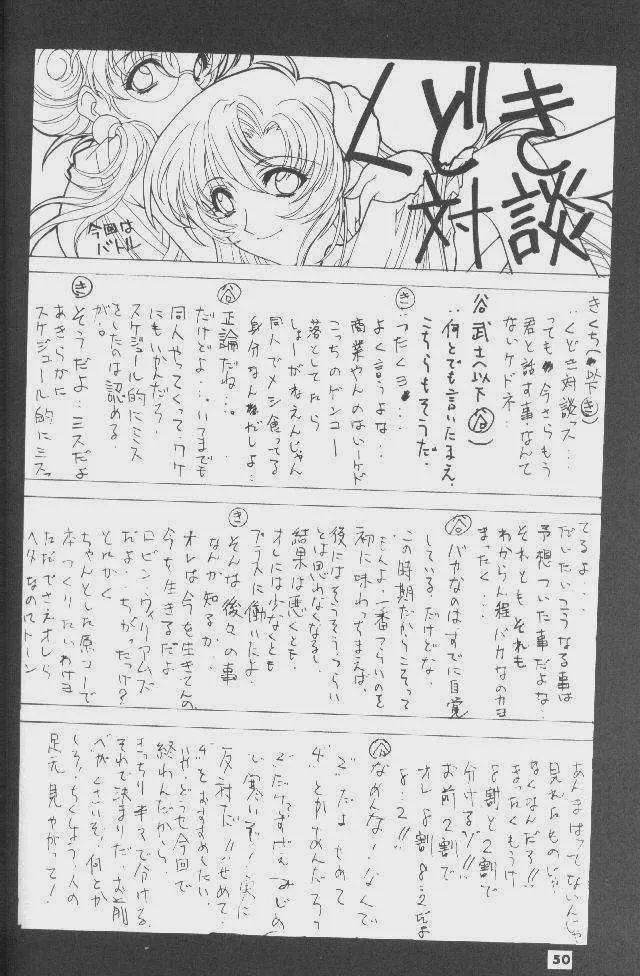 くどき
対談
今回は
バトル
きくち(以下き)
‥くどき対談つス‥
つっても今さらもう
君と話す事なんて
ないケドネ‥
谷 武士(以下谷)
‥何とでも言いたまえ‥
こちらもそうだ‥
き
‥つたくヨ‥‥
よく言うよな‥
商業やんのはいーケド
こっちのゲンコー
落としてたら
しょーがねえんじゃん
同人でメシ食ってる
身分なんだしょ‥
谷
正論だね‥‥
だけどよ‥‥いつまでも
同人やってくってワケ
にもいかんだろ‥
スケジュール的にミス
をしたのは認める‥
が‥
き
そうだよ‥ミスだよ
あきらかに
スケジュール的にミスっ
てるよ‥
だいたいこうなる事は
予想ついた事だよな‥
それとも それも
わからん程バカなのかさ
まったく‥
谷
バカなのはすでに自覚
している‥だけどな‥
この時期だからこそって
初に味わっちまえば‥
後にはそうそうつらい
とは思わなくなるし‥
結果は悪くとも‥
オレには少なくとも
プラスに働いたよ‥
き
そんな後々の事
なんか知るか‥
オレは今を生きてんの
今を生きるだよ
ロビン・ウィリアムズ
だよ‥ちがったっけ?
とにかく
ちゃんとした原コーで
本つくりたいわけヨ
ただでさえオレら
ヘタなのにトーン
あんまはってないんじゃ
見れたものじゃ
なくなんだろ!!
まったくもうけ
8割と2割で
分けるゾ!!
お前2割で
オレ8割 8:2だよ
8:2!!
谷
なめんな!なんで
反対だ!!せめて‥
終わんだから‥
きっちり半々で分ける
それで決まりだ お前
足元見やがって!
50